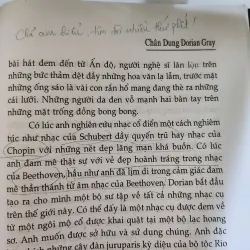 Chân Dung Dorian Gray
bài hát đem đến từ Ấn độ, người nghệ sĩ lăn lộc trên
những bức thảm dệt đầy những hoa văn lạ lẫm, trước mặt
những ống sáo là vài con rắn hổ mang đang thè ra những
cái lưỡi. Những người da đen vỗ mạnh hai bàn tay trên
những mặt trống đồng bong bong.
Có lúc anh nghiên cứu nhạc cổ điển một cách nghiêm
túc như nhạc của Schubert đầy quyến rũ hay nhạc của
Chopin với những nét đẹp lãng mạn khá buồn. Có lúc
anh đam mê thật sự với vẻ đẹp hoành tráng trong nhạc
của Beethoven, hầu như anh đã lịm đi trong cảm giác đam
mê thần thánh từ âm nhạc của Beethoven. Dorian bắt đầu
tạo ra cho mình một bộ sưu tập về tất cả những nhạc cụ
trên thế giới này. Có thể đấy là một nhạc cụ được đem về
từ một ngôi mộ cổ được khai quật tại một bộ lạc hoang
sơ. Anh muốn được sở hữu và sử dụng chúng. Anh đặc
những cây đàn juruparis kỳ diệu của bộ tộc Rio